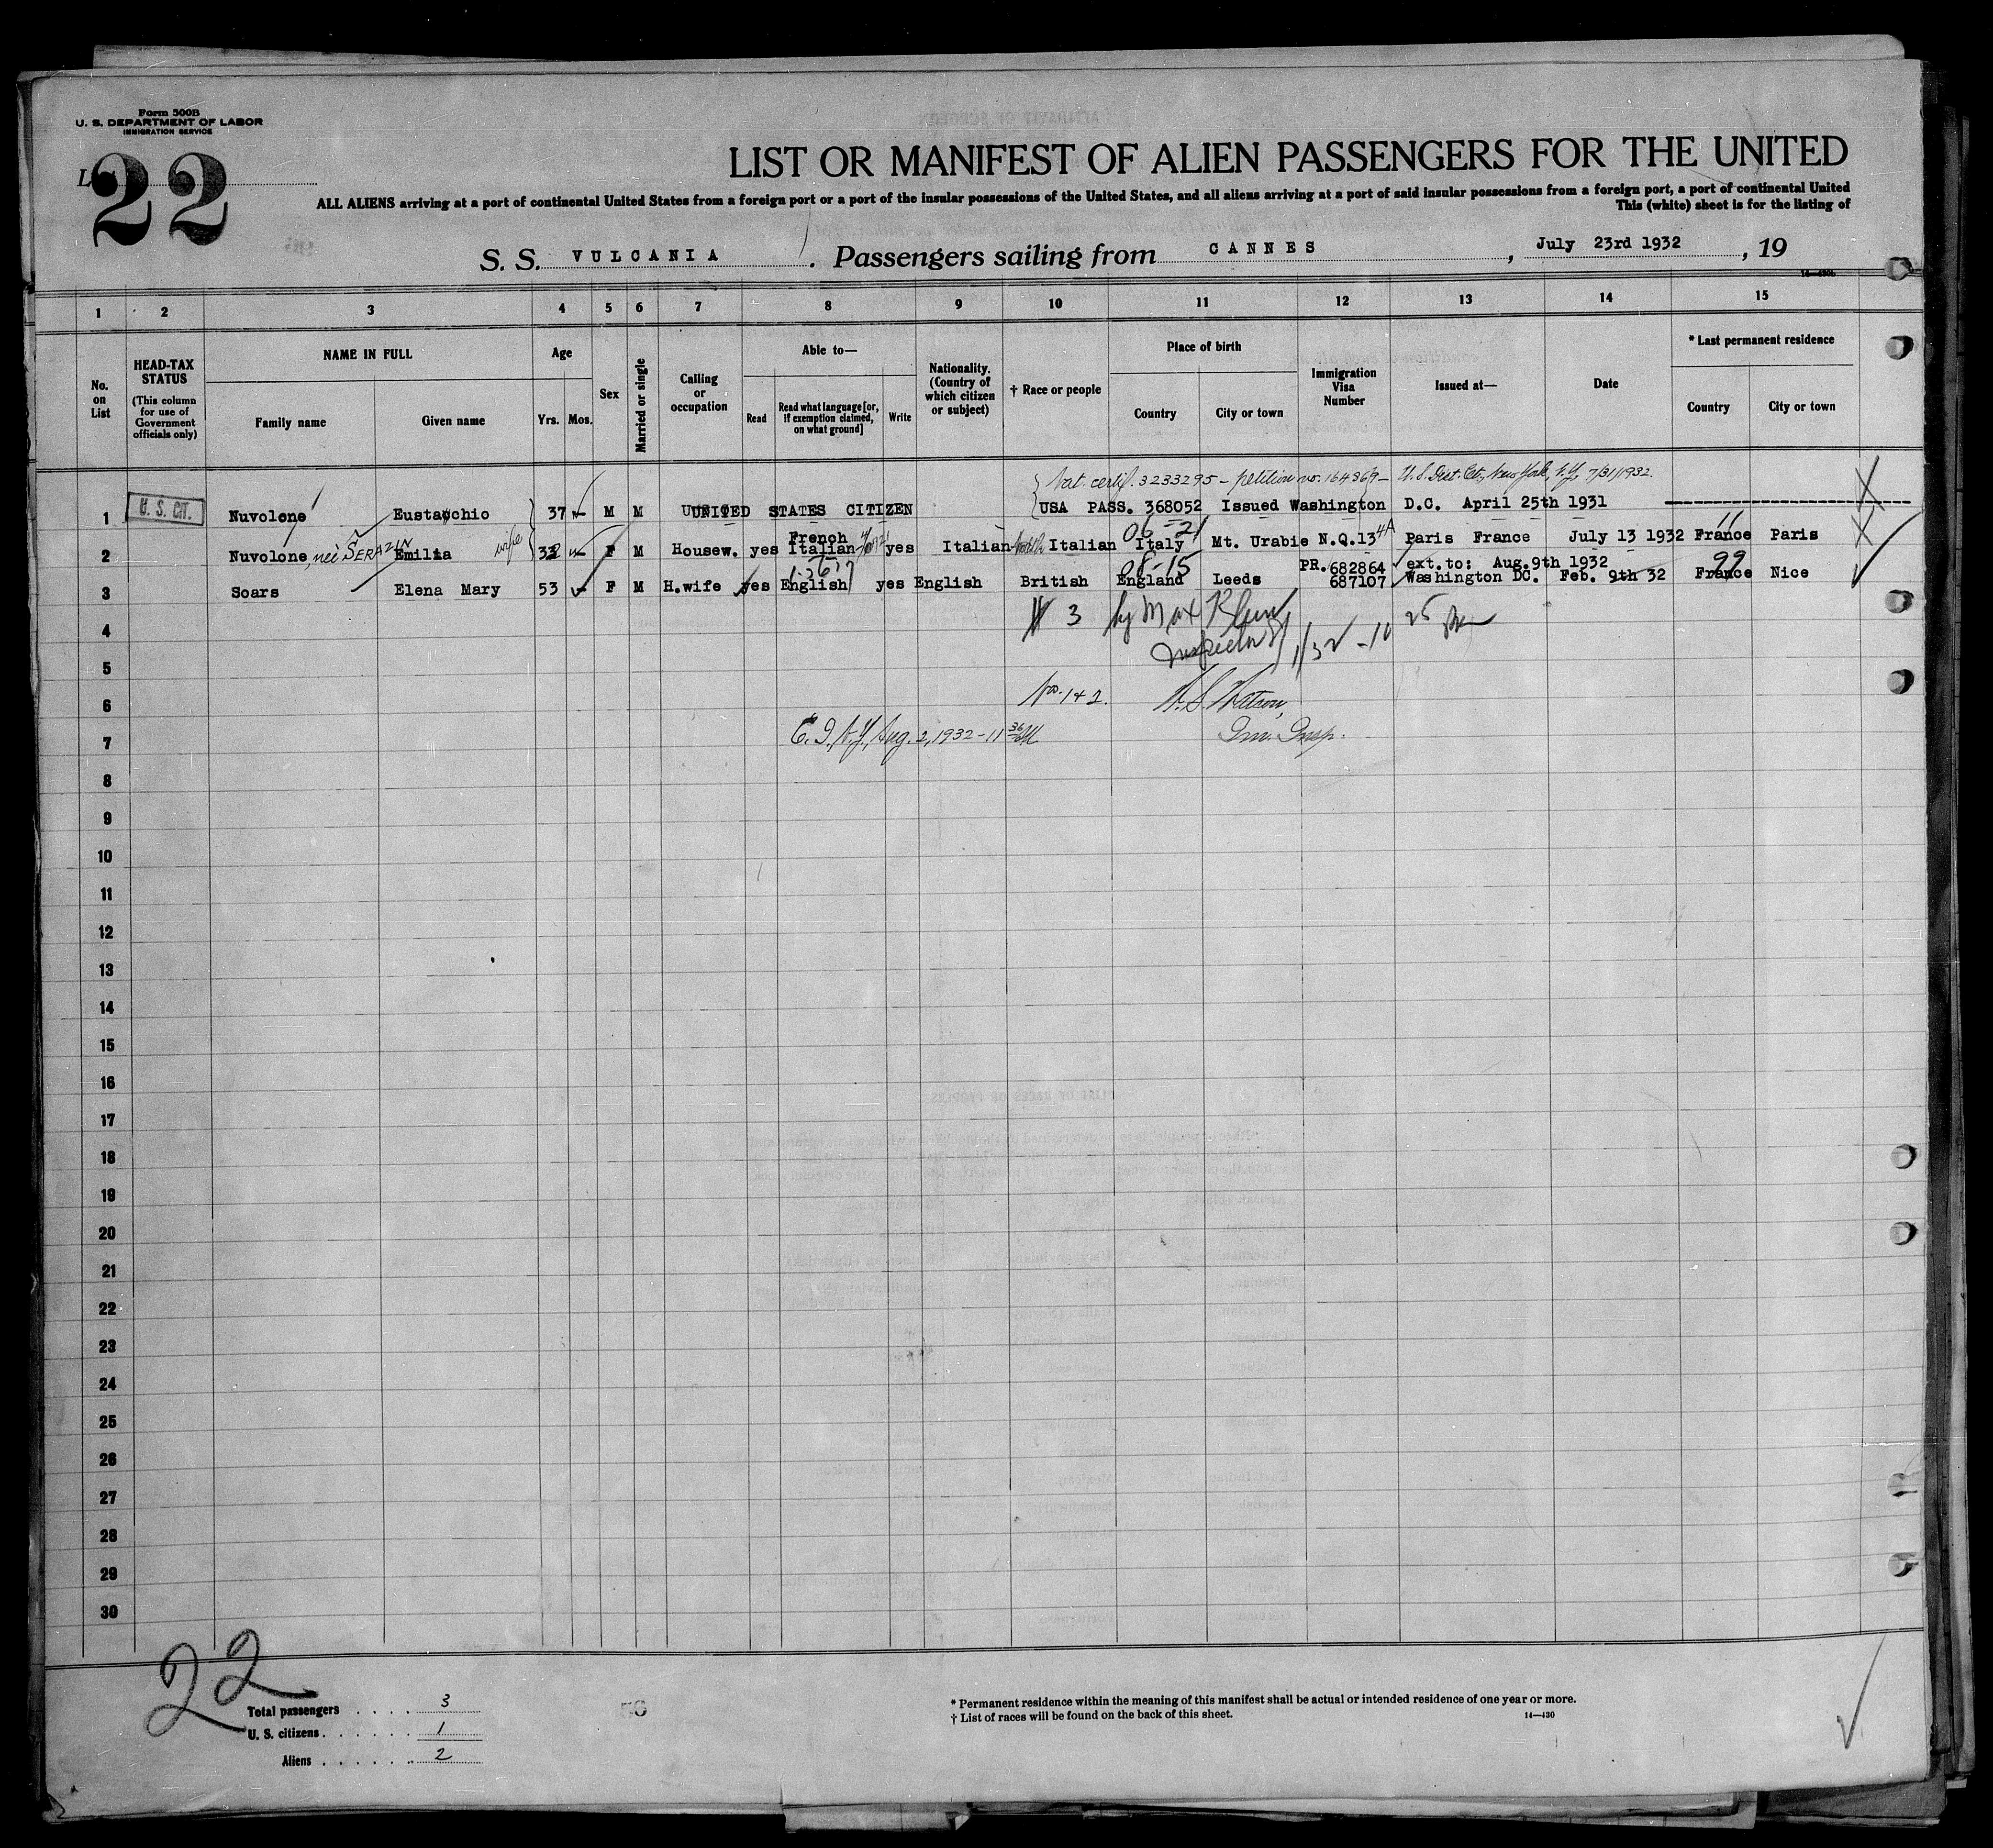 Form 500B
U. S. DEPARTMENT OF LABOR
IMMIGRATION SERVICE
22
LIST OR MANIFEST OF ALIEN PASSENGERS FOR THE UNITED
ALL ALIENS arriving at a port of continental United States from a foreign port or a port of the insular possessions of the United States, and all aliens arriving at a port of said insular possessions from a foreign port, a port of continental United
This (white) sheet is for the listing of
S. S. VULCANIA. Passengers sailing from CANNES, July 23rd 1932, 19
14—430b
1 2 3 4 5 6 7 8 9 10 11 12 13 14 15
No. on List
HEAD-TAX STATUS
(This column for use of Government officials only)
NAME IN FULL
Family name Given name
Age
Yrs. Mos.
Sex
Married or single
Calling or occupation
Able to—
Read Read what language [or, if exemption claimed, on what ground] Write
Nationality. (Country of which citizen or subject)
† Race or people
Place of birth
Country City or town
Immigration Visa Number
Issued at—
Date
* Last permanent residence
Country City or town
Nat. certif. 3233295 — petition no. 164369 — U.S. Dist. Ct., New York, N.Y. 7/31/1932.
1 U. S. CIT. Nuvolone Eustachio 37 M M UNITED STATES CITIZEN USA PASS. 368052 Issued Washington D.C. April 25th 1931
French 06-21 11
2 Nuvolone, neé SERAZIN Emilia wife 32 F M Housew. yes Italian yes Italian North Italian Italy Mt. Urabie N.Q.134A Paris France July 13 1932 France Paris
08-15 PR. 682864 ext. to: Aug. 9th 1932 99
3 Soars Elena Mary 53 F M H.wife yes English yes English British England Leeds 687107 Washington DC. Feb. 9th 32 France Nice
4 # 3 by Max Klein
5 Inspector
6 No. 1 & 2. Watson,
7 Aug. 2, 1932 - 11 Im. Insp.
8
9
10
11
12
13
14
15
16
17
18
19
20
21
22
23
24
25
26
27
28
29
30
22
Total passengers . . . . 3
U. S. citizens . . . . . . 1
Aliens . . . . . . 2
* Permanent residence within the meaning of this manifest shall be actual or intended residence of one year or more.
† List of races will be found on the back of this sheet.
14—430